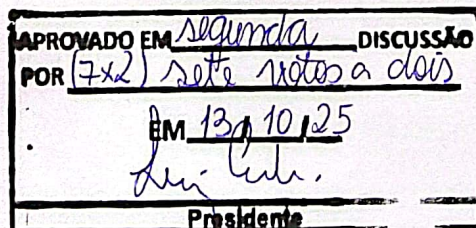 APROVADO EM segunda DISCUSSÃO
POR (7x2) sete votos a dois
EM 13/10/25
Presidente